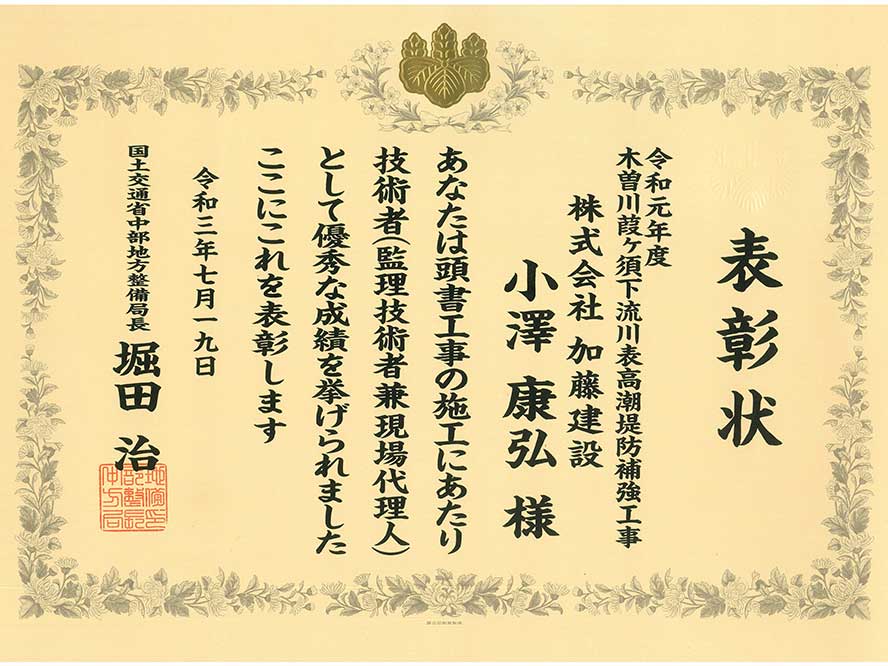 表彰状
令和元年度
木曽川葭ヶ須下流川表高潮堤防補強工事
株式会社 加藤建設
小澤 康弘 様
あなたは頭書工事の施工にあたり
技術者(監理技術者兼現場代理人)
として優秀な成績を挙げられました
ここにこれを表彰します
令和三年七月一九日
国土交通省中部地方整備局長
堀田 治